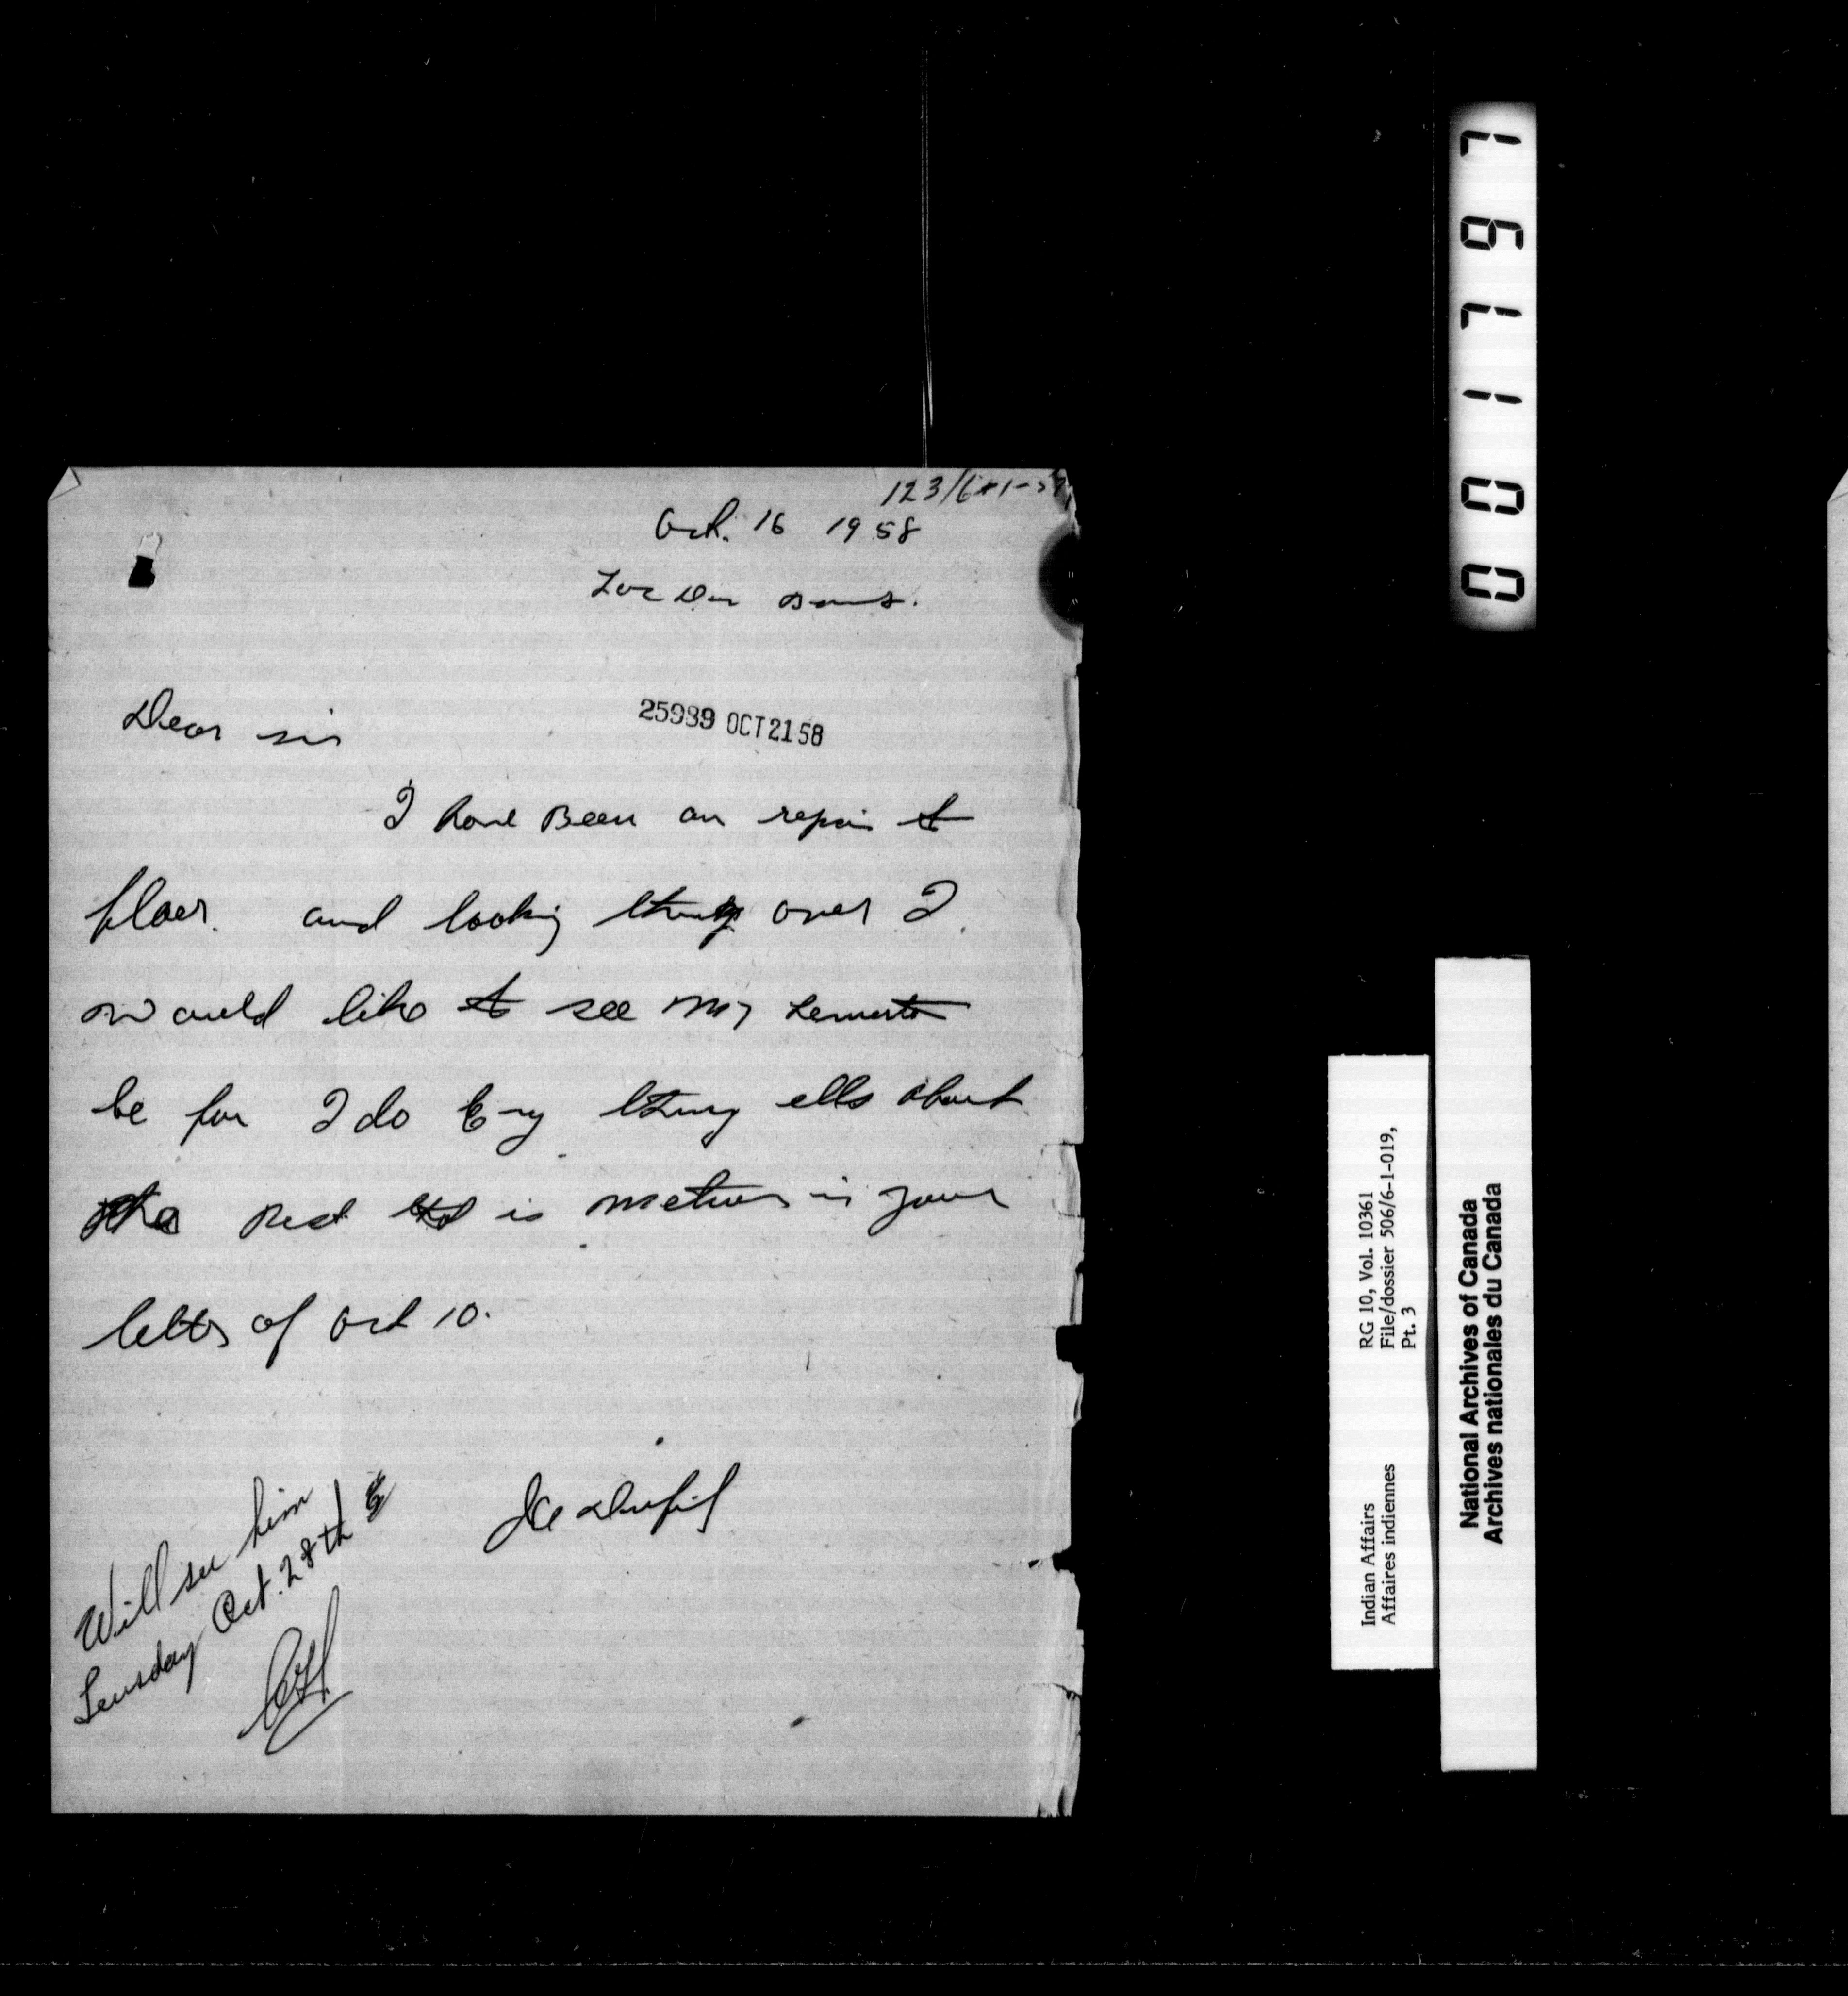 123/6-1-
Oct. 16 1958
Dear sir
25989 OCT 21 58
I have Been an repair to
floer. and looking things over I
would like to see my
be for I do Eny thing ells about
the Rest is in your
letter of Oct 10.
Will see him
Tuesday Oct. 28th
001767
RG 10, Vol. 10361
File/dossier 506/6-11-019,
Pt. 3
Indian Affairs
Affaires indiennes
National Archives of Canada
Archives nationales du Canada